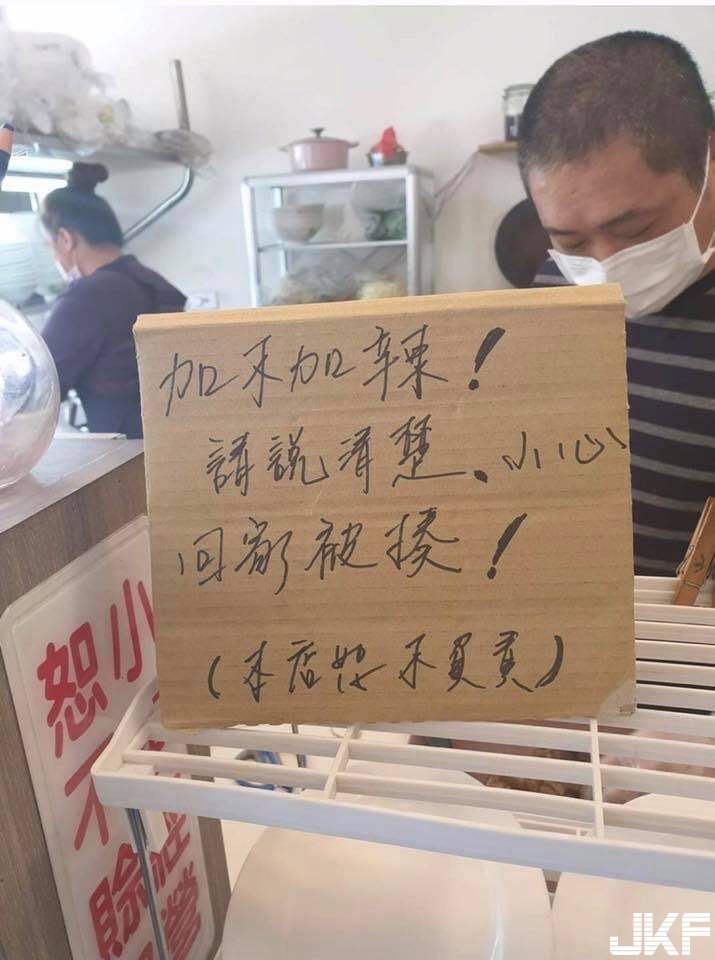 加不加辣！
請說清楚、小心
回家被揍！
（本店恕不負責）
小 營
恕不賒
JKF